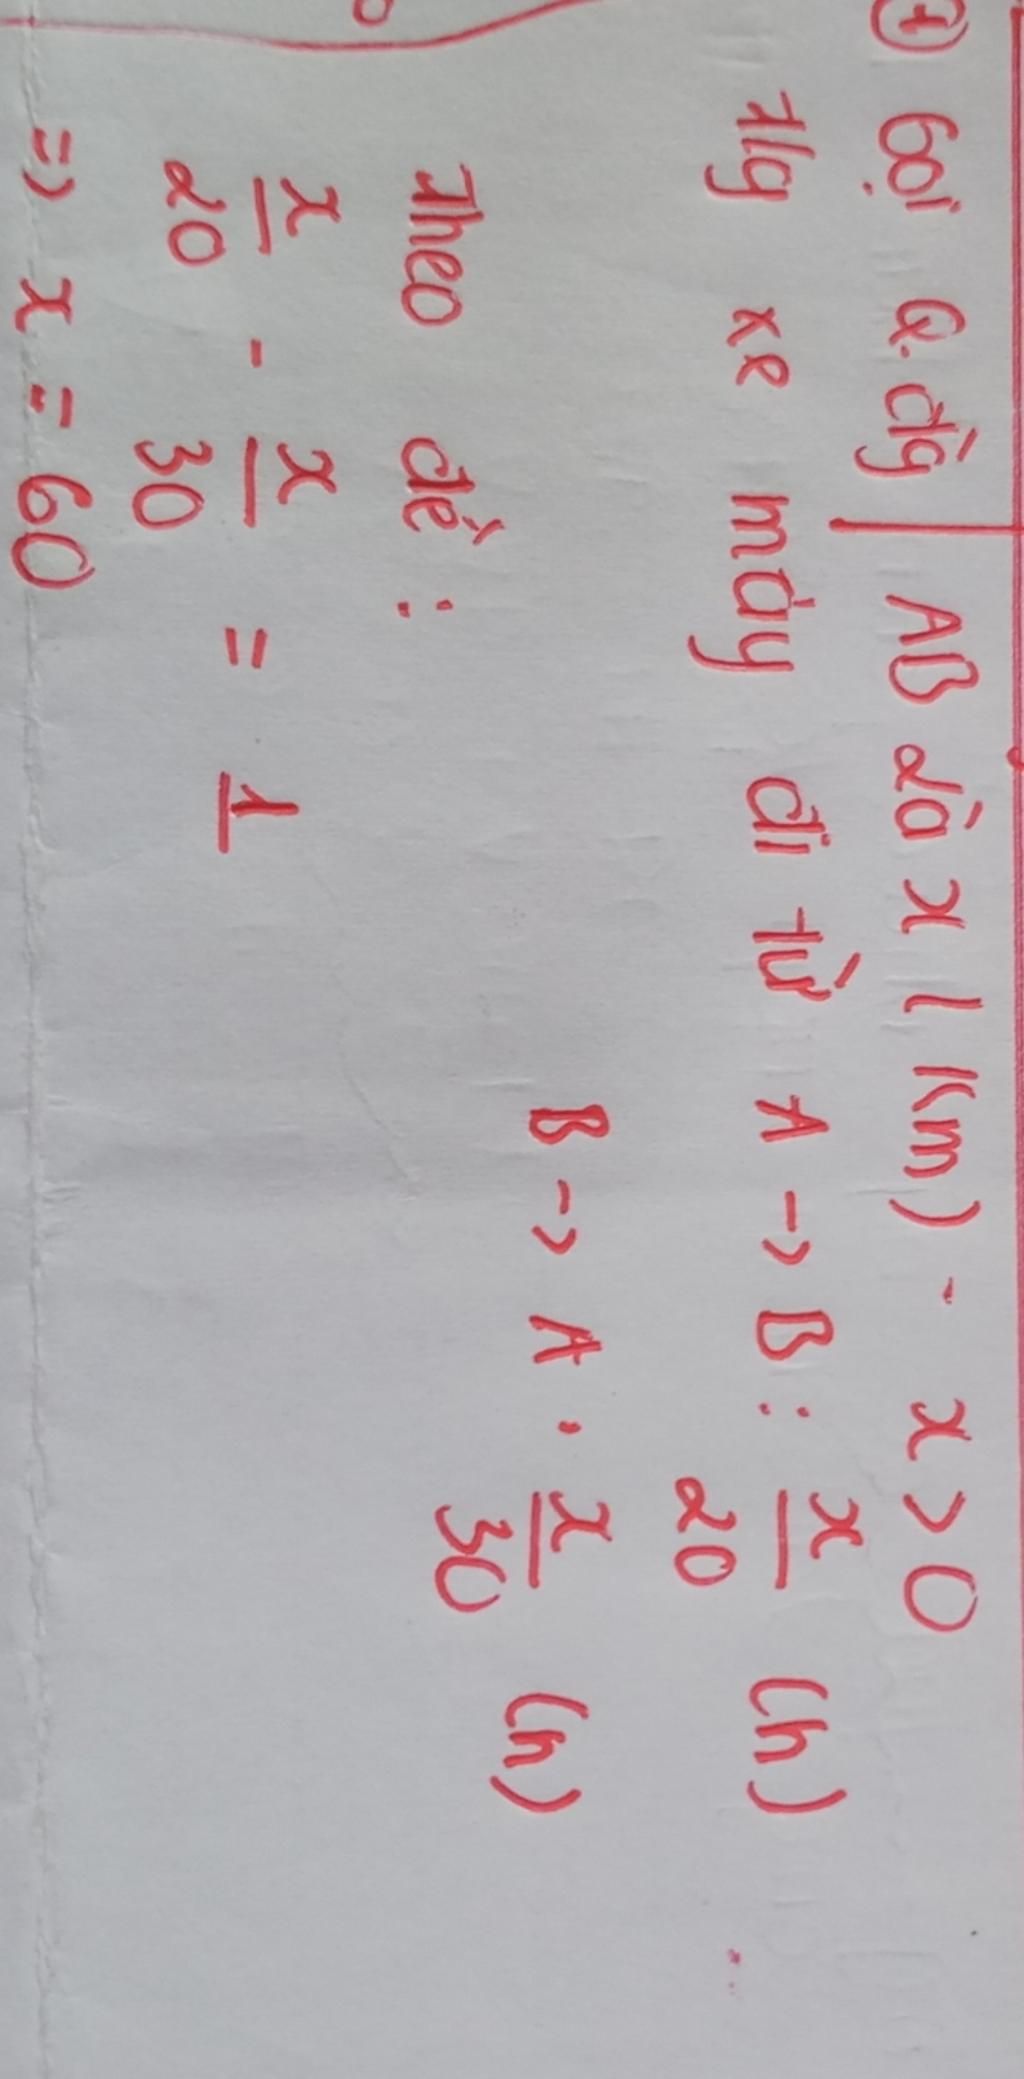 ① Gọi Q.đg AB là x (km) - x > 0
t/g xe máy đi từ A -> B : x/20 (h)
B -> A . x/30 (h)
Theo đề :
x/20 - x/30 = 1
=> x = 60